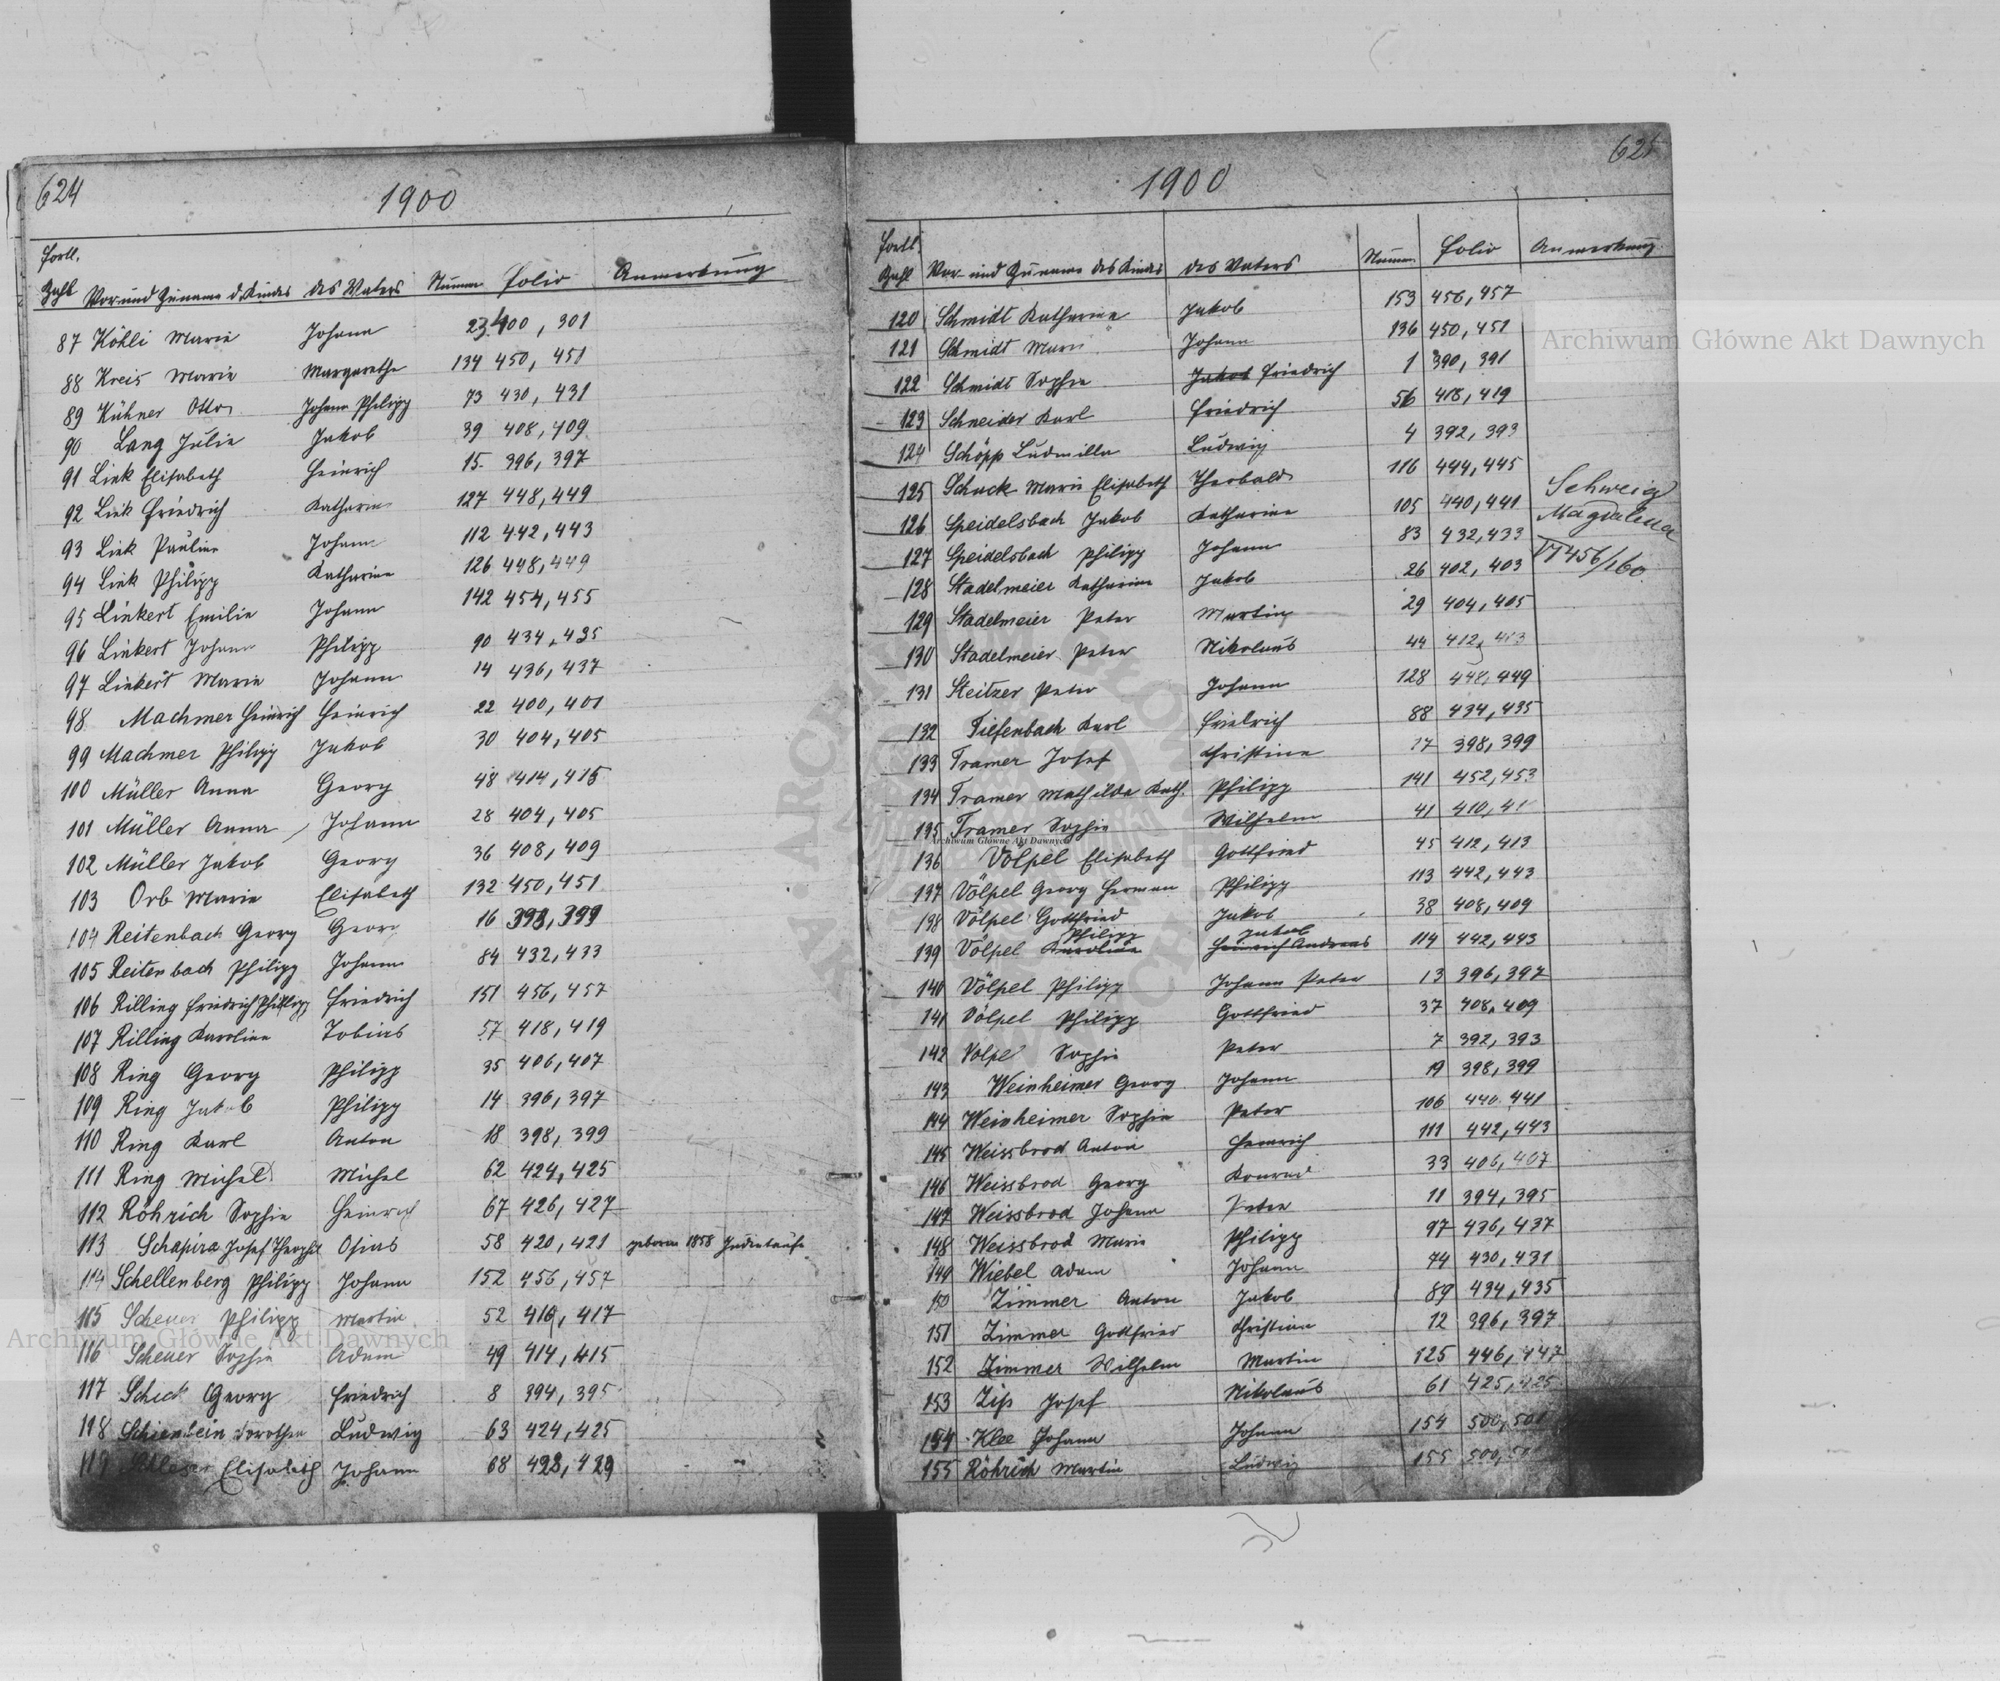 624
1900
Fortl.
Zahl Vor und Zuname d. Kindes des Vaters Numm Folio Anmerkung
87 Köhli Marie Johann 23 400, 301
88 Kreis Marie Margarethe 134 450, 451
89 Kühner Otto Johann Philipp 73 430, 431
90 Lang Julie Jakob 39 408, 409
91 Link Elisabeth Heinrich 15 396, 397
92 Link Friedrich Katharina 127 448, 449
93 Link Pauline Johann 112 442, 443
94 Link Philipp Katharina 126 448, 449
95 Linkert Emilie Johann 142 454, 455
96 Linkert Johann Philipp 90 434, 435
97 Linkert Marie Johann 14 436, 437
98 Machmer Heinrich Heinrich 22 400, 401
99 Machmer Philipp Jakob 30 404, 405
100 Müller Anna Georg 48 414, 415
101 Müller Anna Johann 28 404, 405
102 Müller Jakob Georg 36 408, 409
103 Orb Marie Elisabeth 132 450, 451
104 Reitenbach Georg Georg 16 398, 399
105 Reitenbach Philipp Johann 84 432, 433
106 Rilling Friedrich Philipp Friedrich 151 456, 457
107 Rilling Karoline Tobias 57 418, 419
108 Ring Georg Philipp 35 406, 407
109 Ring Jakob Philipp 14 396, 397
110 Ring Karl Anton 18 398, 399
111 Ring Michel Michel 62 424, 425
112 Röhrich Sophie Heinrich 67 426, 427
113 Schapira Josef Theophil Osias 58 420, 421 geboren 1858 Judentaufe
114 Schellenberg Philipp Johann 152 456, 457
115 Scheuer Philipp Martin 52 416, 417
116 Scheuer Sophie Adam 49 414, 415
117 Schick Georg Friedrich 8 394, 395
118 Schienbein Dorothea Ludwig 63 424, 425
119 Elisabeth Johann 68 428, 429
625
1900
Fortl.
Zahl Vor und Zuname des Kindes des Vaters Numm Folio Anmerkung
120 Schmidt Katharina Jakob 153 456, 457
121 Schmidt Marie Johann 136 450, 451
122 Schmidt Sophie Jakob Friedrich 1 390, 391
123 Schneider Karl Friedrich 56 418, 419
124 Schöpp Ludmilla Ludwig 4 392, 393
125 Schuck Marie Elisabeth Theobald 116 444, 445
Schweig
126 Speidelsbach Jakob Katharina 105 440, 441
Magdalena
127 Speidelsbach Philipp Johann 83 432, 433
VI 456/160
128 Stadelmeier Katharina Jakob 26 402, 403
129 Stadelmeier Peter Martin 29 404, 405
130 Stadelmeier Peter Nikolaus 44 412, 413
131 Steitzer Peter Johann 128 448, 449
132 Tiefenbach Karl Friedrich 88 434, 435
133 Tramer Josef Christine 17 398, 399
134 Tramer Mathilde Kath. Philipp 141 452, 453
135 Tramer Sophie Wilhelm 41 410, 41
136 Völpel Elisabeth Gottfried 45 412, 413
137 Völpel Georg Herman Philipp 113 442, 443
138 Völpel Gottfried Jakob 38 408, 409
Philipp Jakob
139 Völpel Karoline Heinrich Andreas 114 442, 443
140 Völpel Philipp Johann Peter 13 396, 397
141 Völpel Philipp Gottfried 37 408, 409
142 Völpel Sophie Peter 7 392, 393
143 Weinheimer Georg Johann 19 398, 399
144 Weinheimer Sophie Peter 106 440, 441
145 Weissbrod Anton Heinrich 111 442, 443
146 Weissbrod Georg Konrad 33 406, 407
147 Weissbrod Johann Peter 11 394, 395
148 Weissbrod Marie Philipp 97 436, 437
149 Wiebel Adam Johann 74 430, 431
150 Zimmer Anton Jakob 89 434, 435
151 Zimmer Gottfried Christian 12 396, 397
152 Zimmer Wilhelm Martin 125 446, 447
153 Ziss Josef Nikolaus 61 425, 425
154 Klee Johann Johann 154 500, 501
155 Röhrich Martin Ludwig 155 500, 501
Archiwum Główne Akt Dawnych
Archiwum Główne Akt Dawnych
Archiwum Główne Akt Dawnych